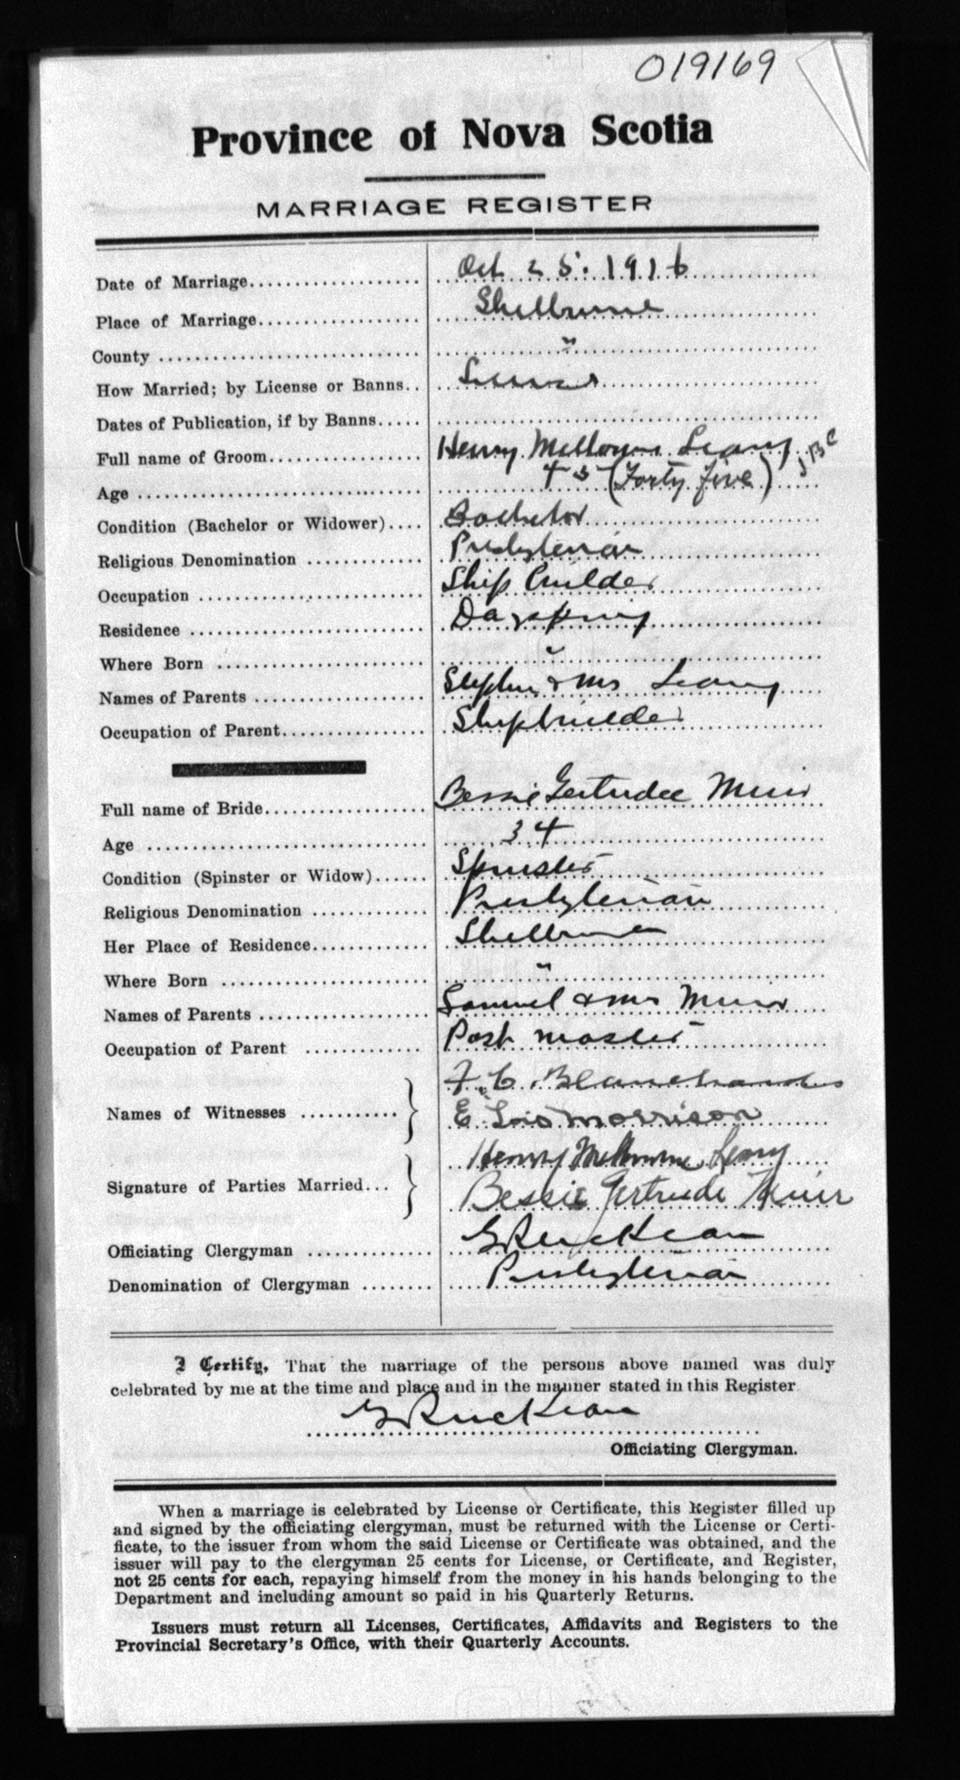 019169
Province of Nova Scotia
MARRIAGE REGISTER
Date of Marriage Oct 25. 1916
Place of Marriage Shelburne
County "
How Married; by License or Banns License
Dates of Publication, if by Banns
Full name of Groom Henry Melbourne Leary
Age 45 (Forty Five)
Condition (Bachelor or Widower) Bachelor
Religious Denomination Presbyterian
Occupation Ship Builder
Residence Dayspring
Where Born "
Names of Parents Stephen & Mrs Leary
Occupation of Parent Shipbuilder
Full name of Bride Bessie Gertrude Muir
Age 34
Condition (Spinster or Widow) Spinster
Religious Denomination Presbyterian
Her Place of Residence Shelburne
Where Born "
Names of Parents Samuel & Mrs Muir
Occupation of Parent Post Master
Names of Witnesses
E. Lois Morrison
Signature of Parties Married Henry Melbourne Leary
Bessie Gertrude Muir
Officiating Clergyman
Denomination of Clergyman Presbyterian
I Certify, That the marriage of the persons above named was duly
celebrated by me at the time and place and in the manner stated in this Register
Officiating Clergyman.
When a marriage is celebrated by License or Certificate, this Register filled up
and signed by the officiating clergyman, must be returned with the License or Certi-
ficate, to the issuer from whom the said License or Certificate was obtained, and the
issuer will pay to the clergyman 25 cents for License, or Certificate, and Register,
not 25 cents for each, repaying himself from the money in his hands belonging to the
Department and including amount so paid in his Quarterly Returns.
Issuers must return all Licenses, Certificates, Affidavits and Registers to the
Provincial Secretary's Office, with their Quarterly Accounts.